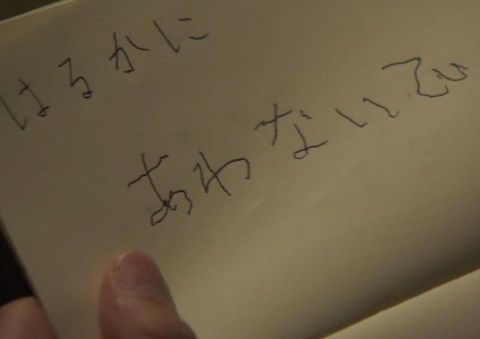 はるかに
あわないで